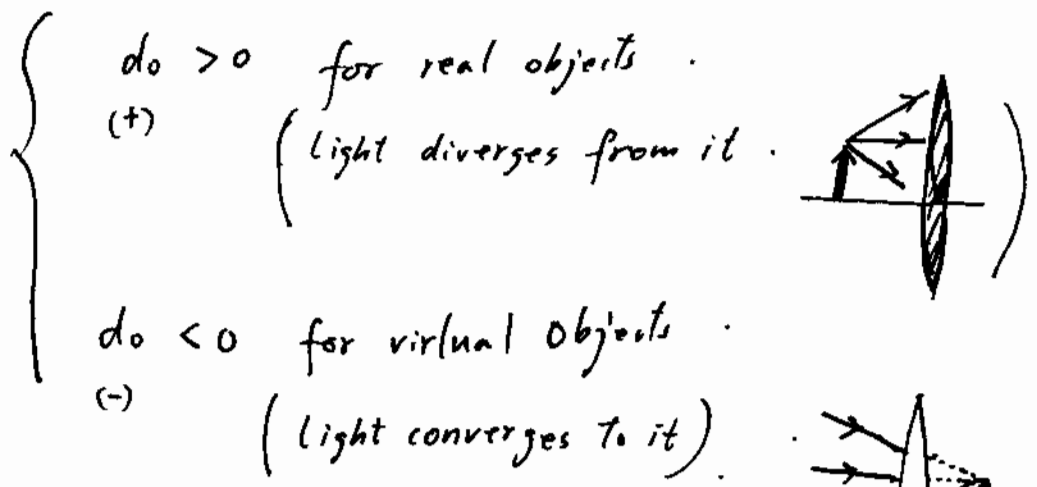 do > 0 for real objects .
(+)
( light diverges from it . )
do < 0 for virtual objects .
(-)
( light converges to it ) .